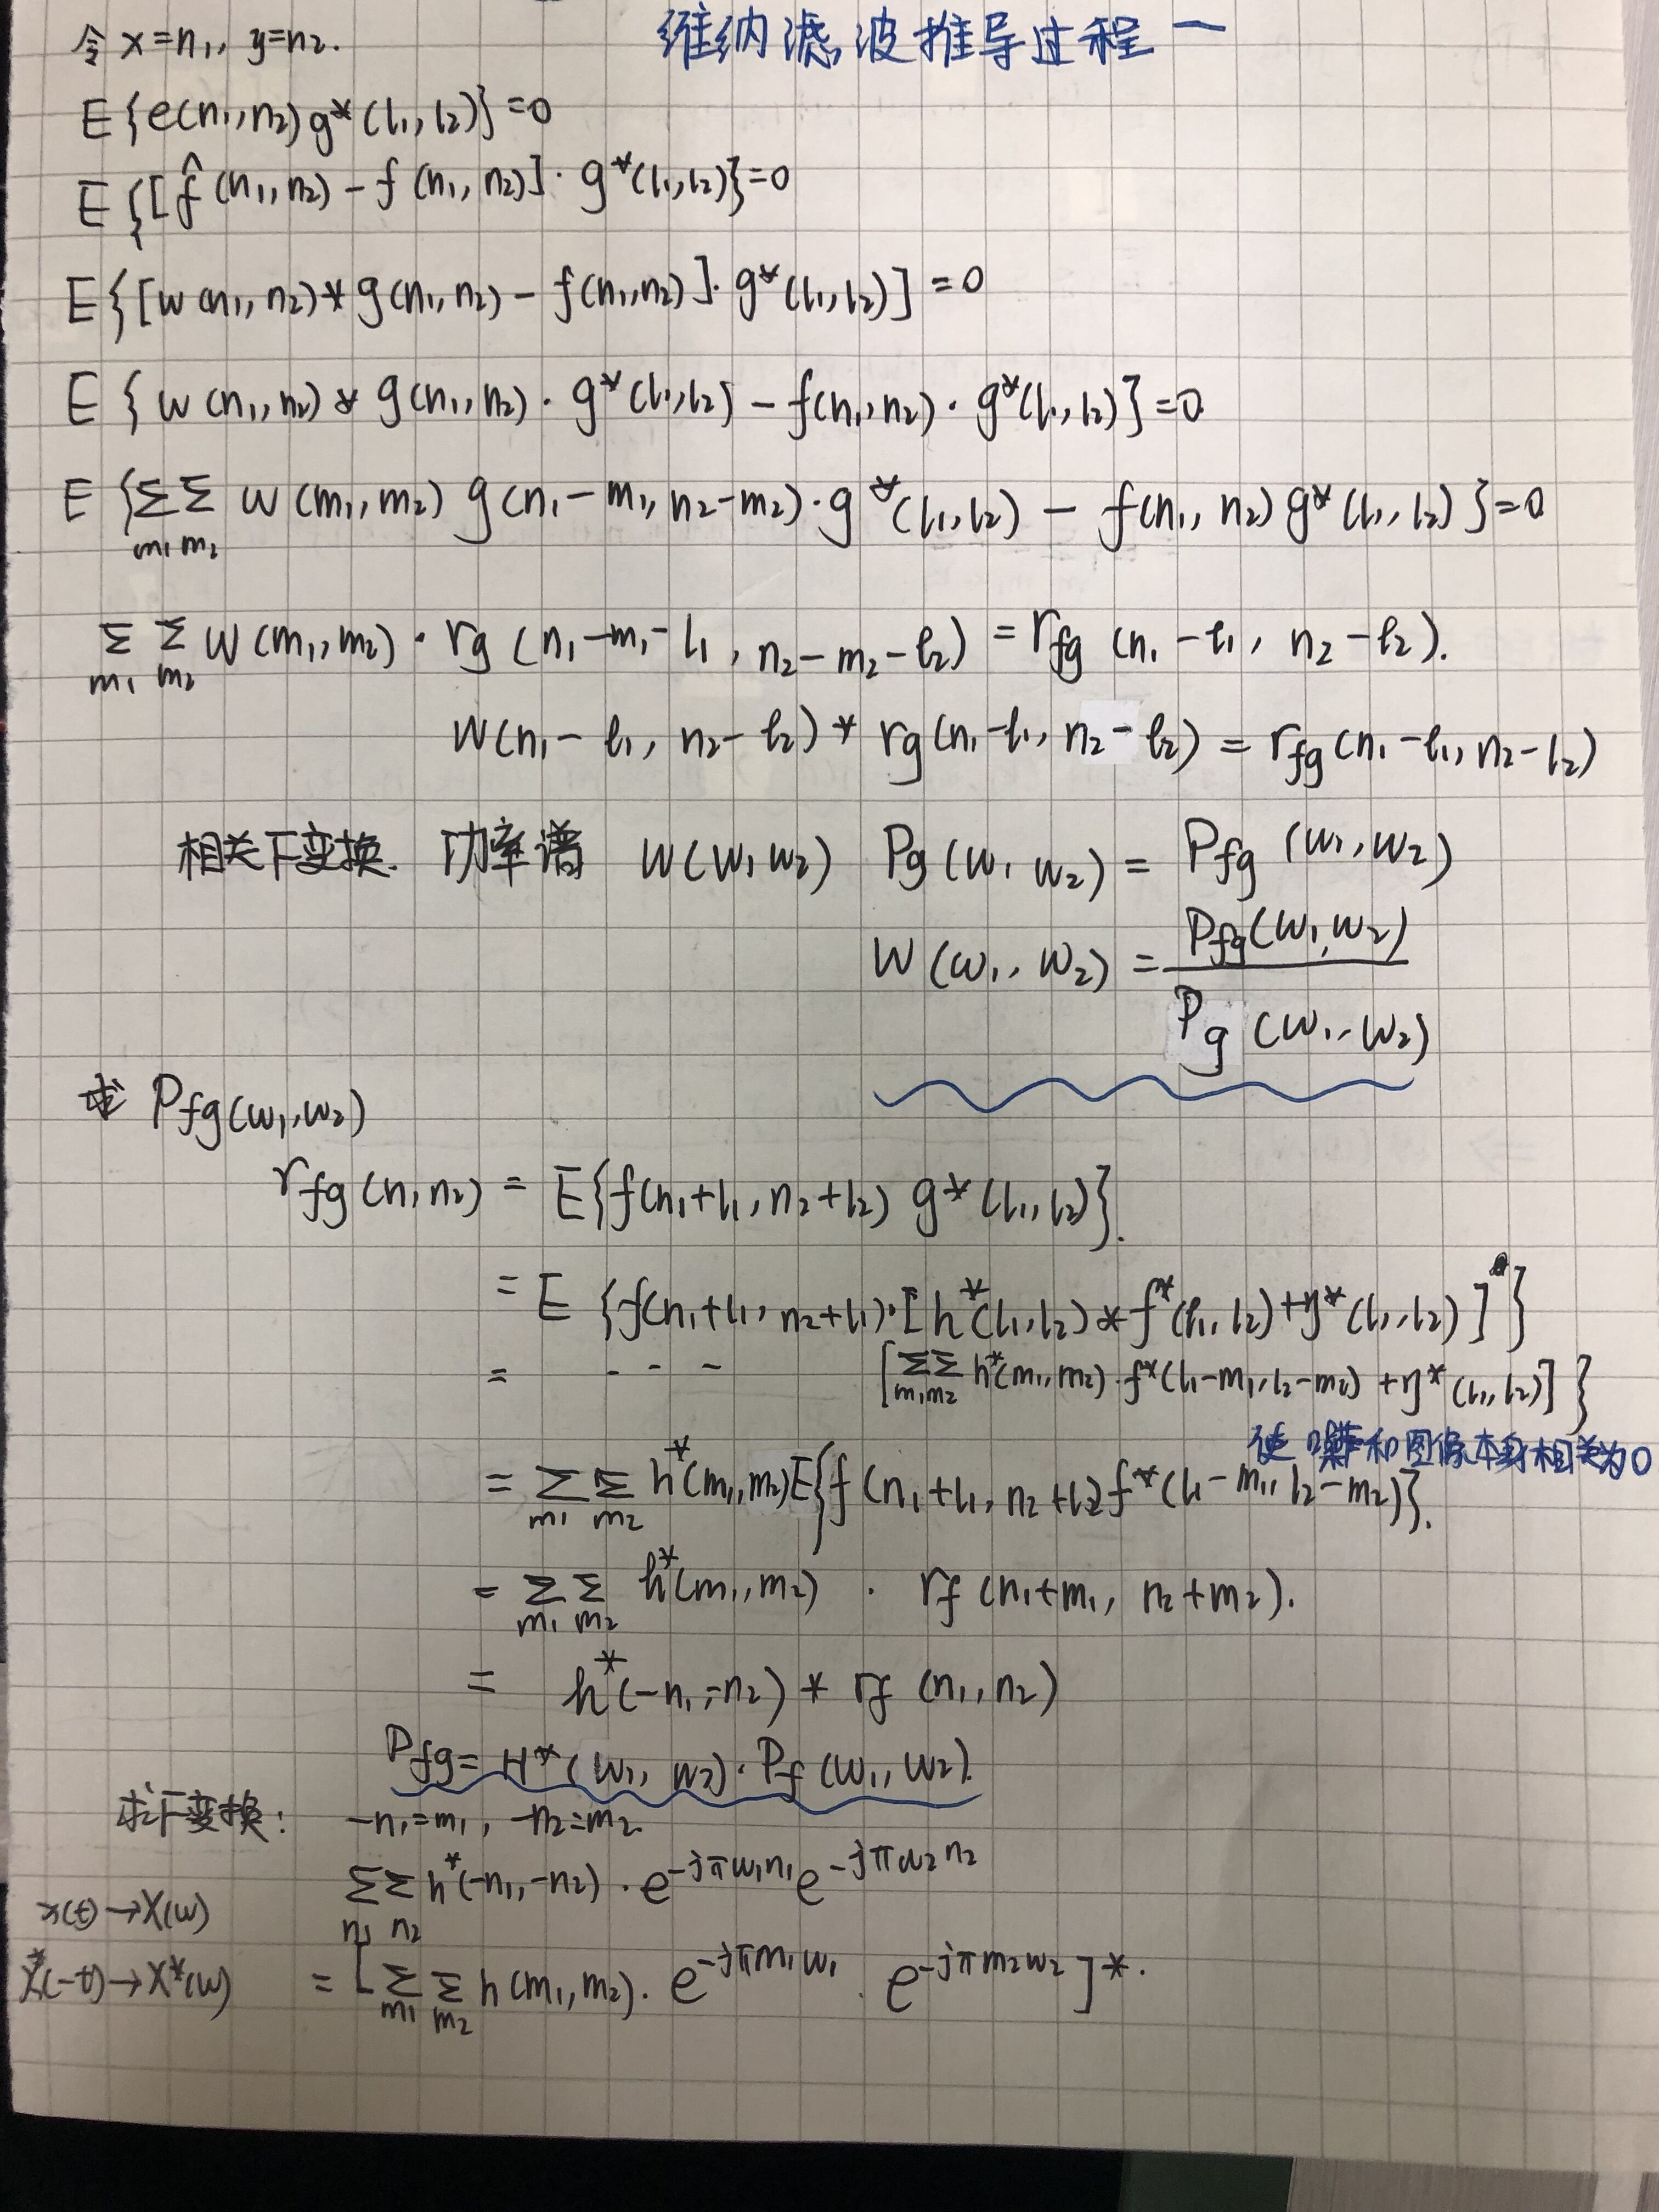 维纳滤波推导过程一
令 x=n₁, y=n₂.
E{e(n₁,n₂)g*(l₁,l₂)}=0
E{[f̂(n₁,n₂)-f(n₁,n₂)]·g*(l₁,l₂)}=0
E{[w(n₁,n₂)*g(n₁,n₂)-f(n₁,n₂)]·g*(l₁,l₂)]=0
E{w(n₁,n₂)*g(n₁,n₂)·g*(l₁,l₂)-f(n₁,n₂)·g*(l₁,l₂)}=0
E{∑∑ w(m₁,m₂)g(n₁-m₁,n₂-m₂)·g*(l₁,l₂)-f(n₁,n₂)g*(l₁,l₂)}=0
m₁ m₂
∑ ∑ W(m₁,m₂)·rg(n₁-m₁-l₁, n₂-m₂-l₂)=rfg(n₁-l₁, n₂-l₂).
m₁ m₂
W(n₁-l₁, n₂-l₂)*rg(n₁-l₁, n₂-l₂)=rfg(n₁-l₁, n₂-l₂)
相关F变换. 功率谱 W(w₁w₂) Pg(w₁w₂)=Pfg(w₁,w₂)
W(w₁,w₂)=Pfg(w₁,w₂)
Pg(w₁,w₂)
求 Pfg(w₁,w₂)
rfg(n₁n₂)=E{f(n₁+l₁,n₂+l₂)g*(l₁,l₂)}.
=E{f(n₁+l₁,n₂+l₁)·[h*(l₁,l₂)*f*(l₁,l₂)+η*(l₁,l₂)]}
= - - - [∑∑h*(m₁,m₂)·f*(l₁-m₁,l₂-m₂)+η*(l₁,l₂)]}
m₁m₂
使噪声和图像本身相关为0
=∑∑h*(m₁,m₂)E{f(n₁+l₁,n₂+l₂)f*(l₁-m₁,l₂-m₂)}.
m₁ m₂
=∑∑ h*(m₁,m₂) · rf(n₁+m₁, n₂+m₂).
m₁ m₂
= h*(-n₁,-n₂)*rf(n₁,n₂)
Pfg=H*(w₁,w₂)·Pf(w₁,w₂).
求F变换: -n₁=m₁, -n₂=m₂.
∑∑h*(-n₁,-n₂)·e^{-jπw₁n₁}e^{-jπw₂n₂}
n₁ n₂
x(t)→X(w)
x*(-t)→X*(w)
=[∑∑h(m₁,m₂)·e^{-jπm₁w₁}·e^{-jπm₂w₂}]*.
m₁ m₂